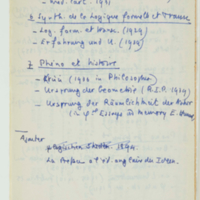 2 Synth. de la logique formelle et Transc.
- Log. form. et trans. (1929)
- Erfahrung und U. (1939)
2 Phéno et histoire
- Krisis (1900 in Philosophia)
- Ursprung der Geometrie (R.I.P. 1939)
- Ursprung der Räumlichkeit der Natur
Essays in memory E. Husserl
Ajouter
Logischen Studien. 1894.
La Préface et éd. anglaise du Ideen.